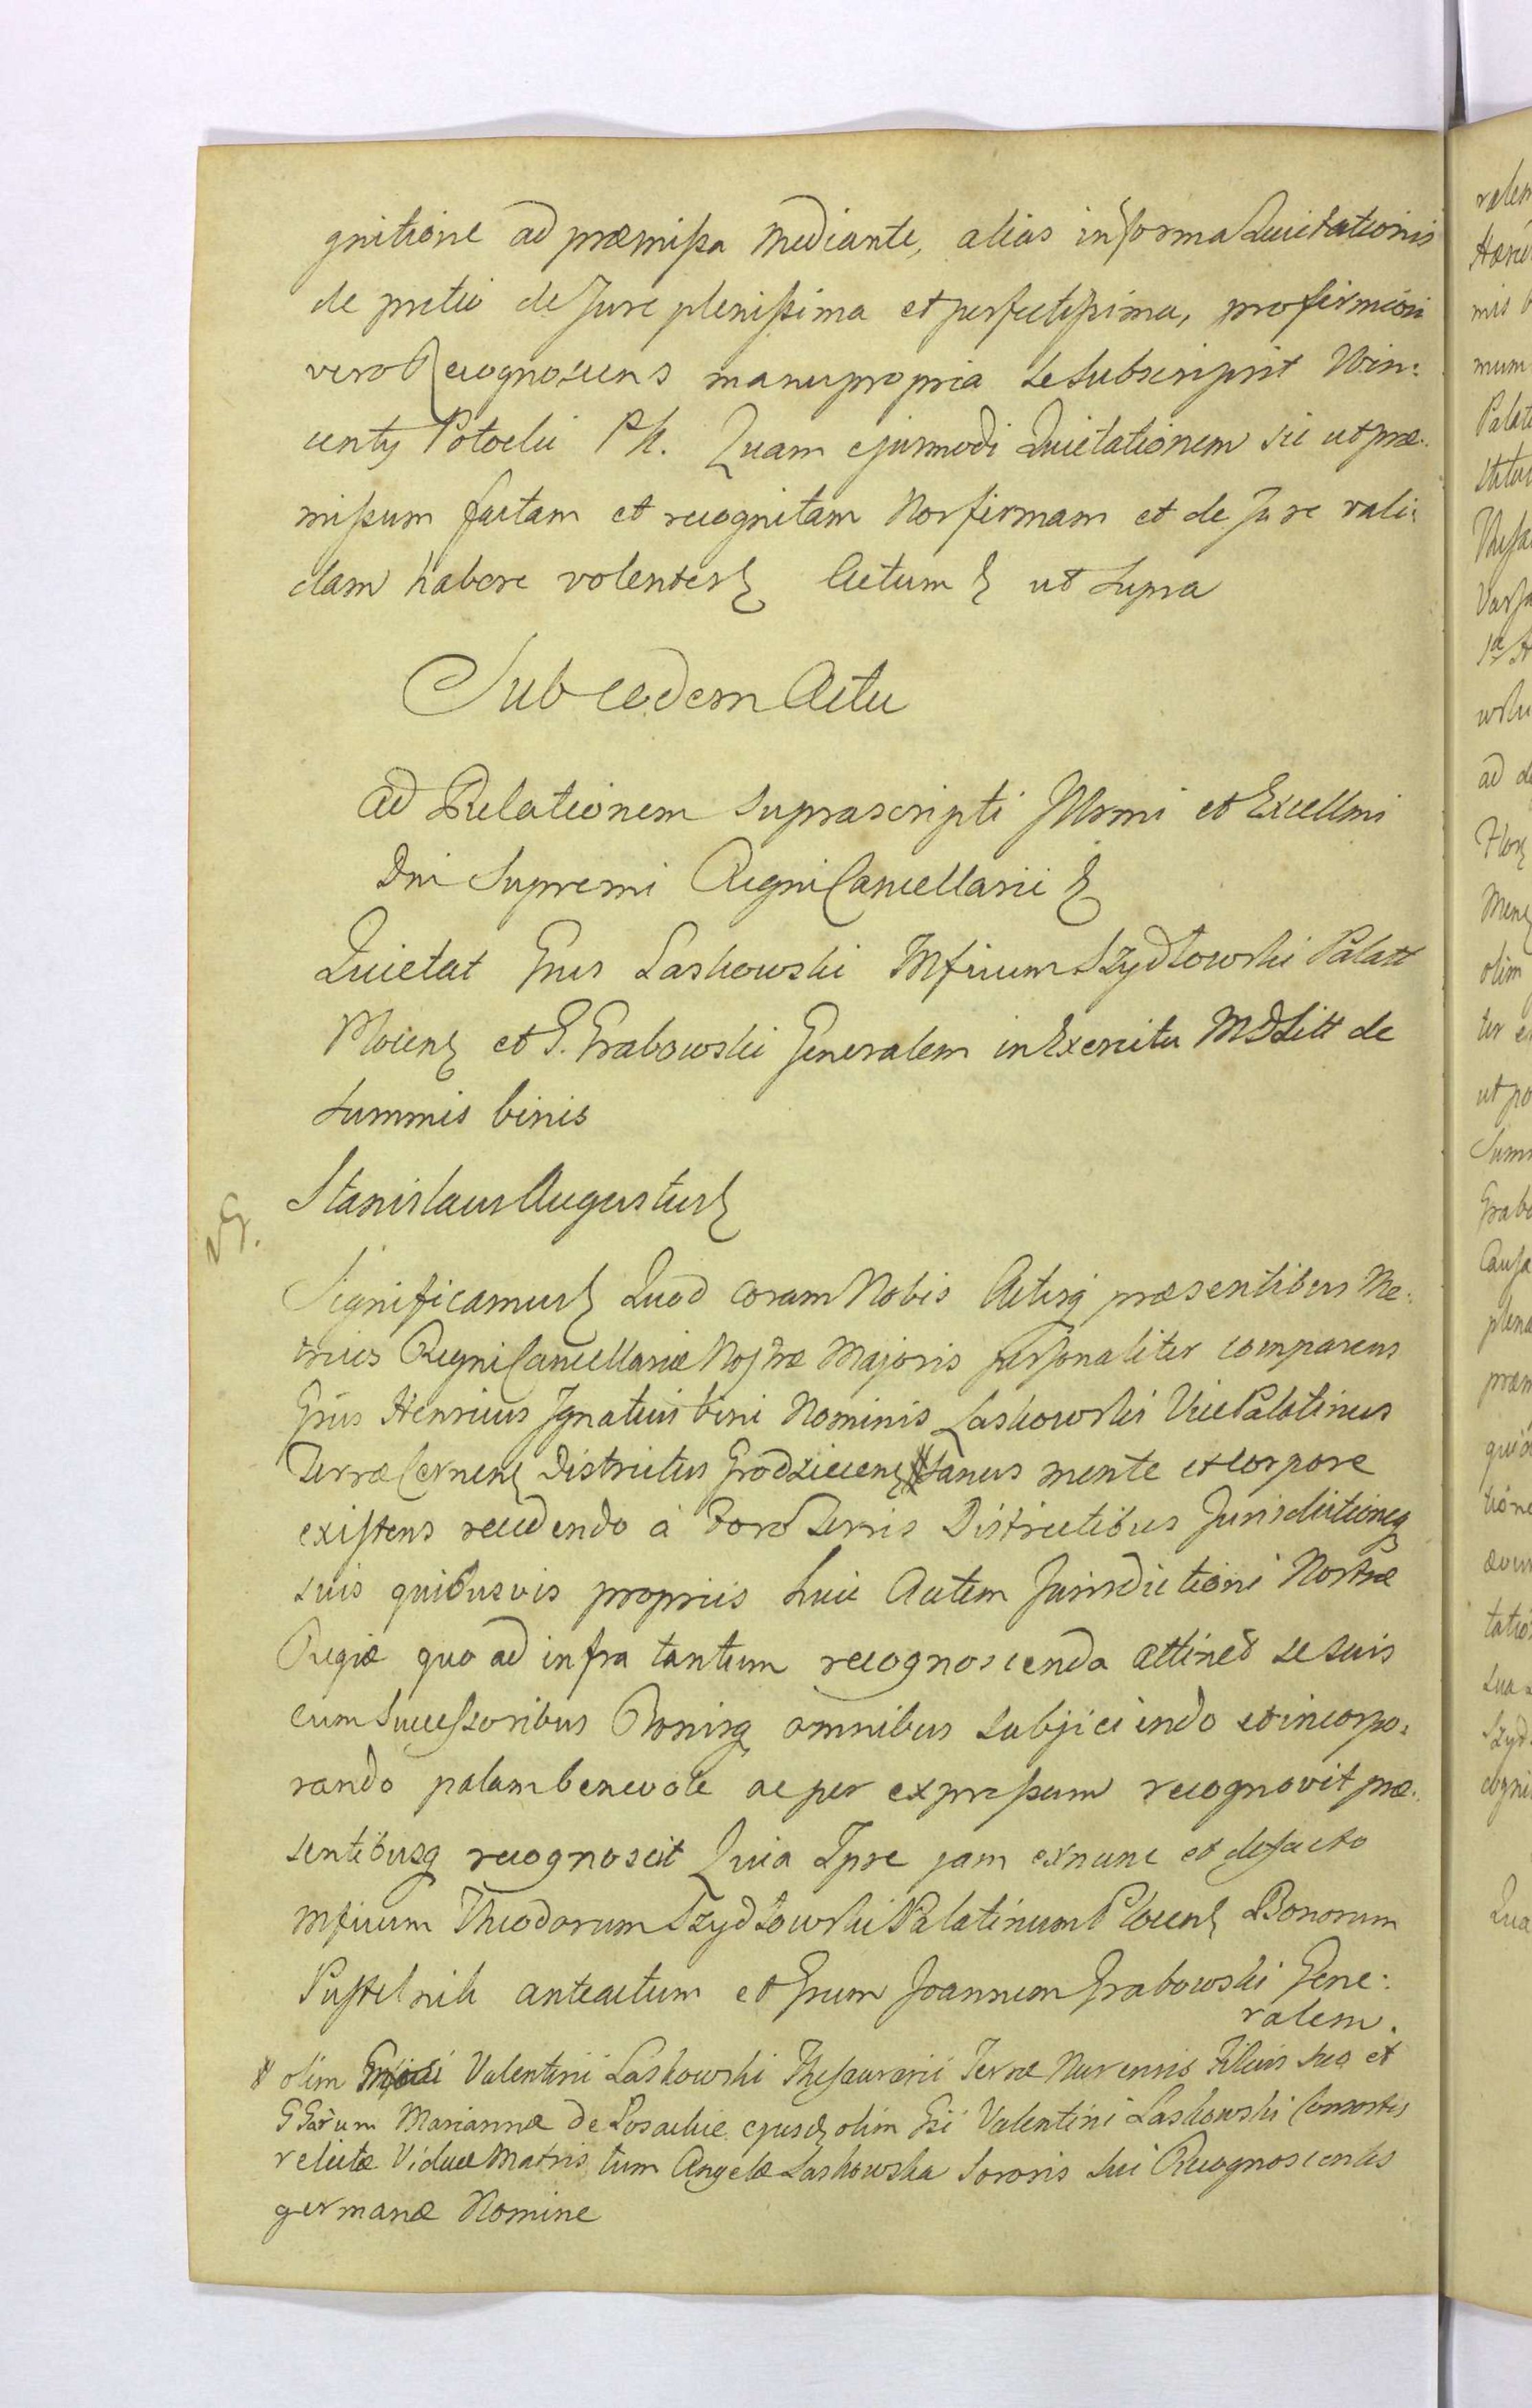 gnitione ad præmissa mediante, alias in forma Quietationis
de pretio de Jure plenissima et perfectissima, pro firmiori
vero Recognoscens manu propria se subscripsit Win-
centy Potocki Pk. Quam ejusmodi Quietationem sic ut præ-
missum factam et recognitam Nos firmam et de Jure vali-
dam habere volentes Actum ut Supra
Sub eodem Actu
Ad Relationem suprascripti Illrmi et Excellmi
Dni Supremi Regni Cancellarii
Quietat Grus Laskowski Mficum Szydłowski Palatt
Plocens et G. Grabowski Generalem in Exercitu MDLitt de
summis binis
Stanislaus Augustus
Significamus Quod coram Nobis Actisq præsentibus Me-
trices Regni Cancellariæ Nostræ Majoris personaliter comparens
Grus Henricus Ignatius bini Nominis Laskowski Vice Palatinus
Terræ Cernens Districtus Grodziecens sanus mente et corpore
existens recedendo à Foro Terris Districtibus Jurisdictioneq
suis quibusvis propriis huic Autem Jurisdictioni Nostræ
Regiæ quo ad infra tantum recognoscenda attinet se suis
cum Successoribus Bonisq omnibus subjiciendo et incorpo-
rando palam benevole ac per expressum recognovit præ-
sentibusq recognoscit Quia Ipse jam exnunc et defacto
Mficum Theodorum Szydłowski Palatinum Plocens Bonorum
Pustelnik anteactum et Grum Joannem Grabowski Gene-
ralem.
olim Valentini Laskowski Thesaurarii Terræ Nurensis Filius suo et
GGarum Mariannæ de ejusd olim Gsi Valentini Laskowski Consortis
relictæ Viduæ Matris tum Angelæ Laskowska Sororis sui Recognoscentis
germanæ Nomine